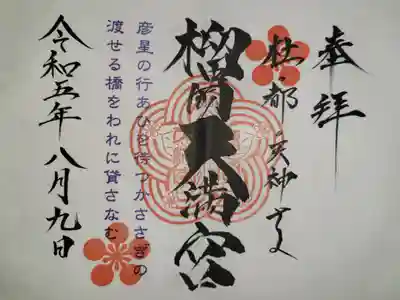 奉拝
杜の都の天神さま
榴岡天満宮
彦星の行あひを待つかささぎの
渡せる橋をわれに貸さなむ
令和五年八月九日